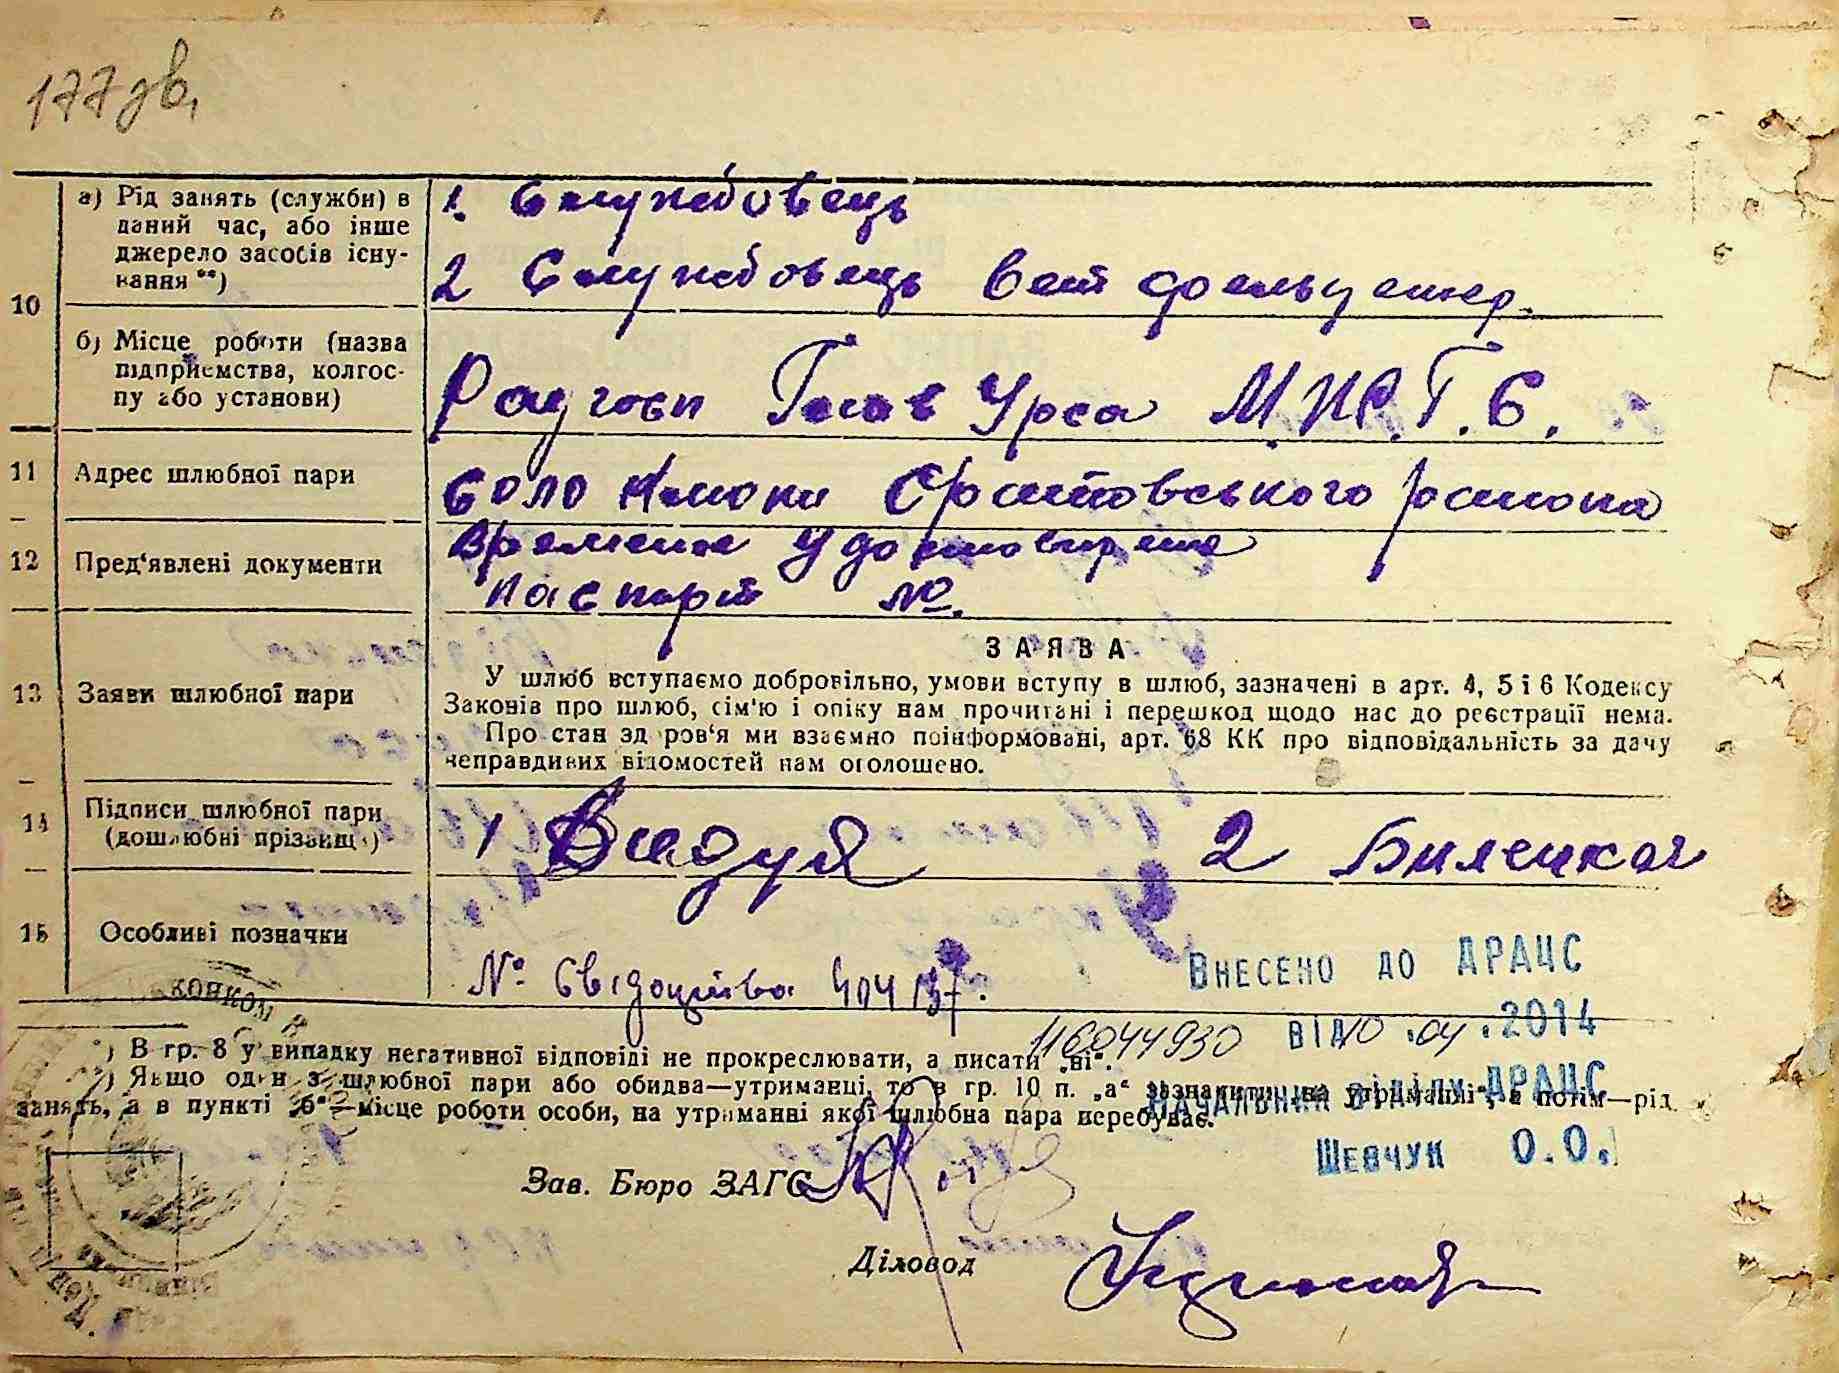 177 зв.
10
а) Рід занять (служби) в
даний час, або інше
джерело засобів існу-
вання **)
1. Службовець
2 Службовець вет фельдшер.
б) Місце роботи (назва
підприємства, колгос-
пу або установи)
Радгосп Урса
11
Адрес шлюбної пари
Фрунтовського района
12
Пред'явлені документи
Времене
Паспорт №.
13
Заяви шлюбної пари
ЗАЯВА
У шлюб вступаємо добровільно, умови вступу в шлюб, зазначені в арт. 4, 5 і 6 Кодексу
Законів про шлюб, сім'ю і опіку нам прочитані і перешкод щодо нас до реєстрації нема.
Про стан здоров'я ми взаємно поінформовані, арт. 68 КК про відповідальність за дачу
неправдивих відомостей нам оголошено.
14
Підписи шлюбної пари
(дошлюбні прізвища)
1
2 Билецкая
15
Особливі позначки
№ Свідоцтва 404137.
Внесено до ДРАЦС
116044930 від 10.04.2014
*) В гр. 8 у випадку негативної відповіді не прокреслювати, а писати „ні".
**) Якщо один з шлюбної пари або обидва—утриманці, то в гр. 10 п. „а" зазначити „на утриманні", а потім—рід
занять, а в пункті „б"—місце роботи особи, на утриманні якої шлюбна пара перебуває.
Начальник відділу ДРАЦС
Шевчук О.О.
Зав. Бюро ЗАГС
Діловод